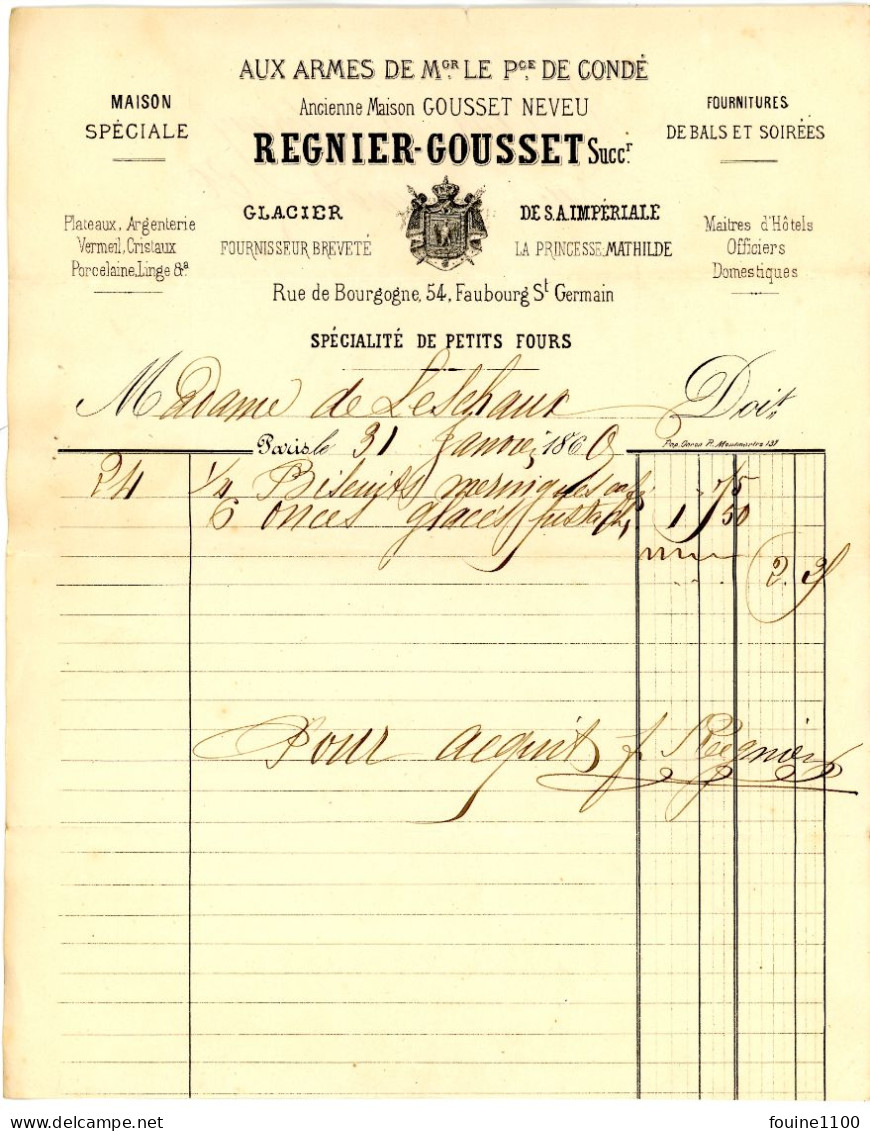 AUX ARMES DE Mgr LE Pce DE CONDÉ
MAISON SPÉCIALE
Ancienne Maison GOUSSET NEVEU
FOURNITURES DE BALS ET SOIRÉES
REGNIER-GOUSSET Succr.
Plateaux, Argenterie
Vermeil, Cristaux
Porcelaine, Linge &a
GLACIER DE S.A. IMPÉRIALE
FOURNISSEUR BREVETÉ LA PRINCESSE MATHILDE
Maitres d'Hôtels
Officiers
Domestiques
Rue de Bourgogne, 54, Faubourg St Germain
SPÉCIALITÉ DE PETITS FOURS
Madame de Doit
Paris le 31 Janvier 1868
24 1/4 Biscuits 75
6 onces glaces 1 50
2. 25
Pour acquit f. Regnier
fouine1100